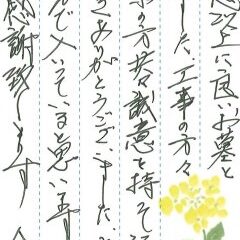 以上に良いお墓と
した。工事の方々
の方も誠意を持って
ありがとうございました。
んで入っていると思います
感謝致します